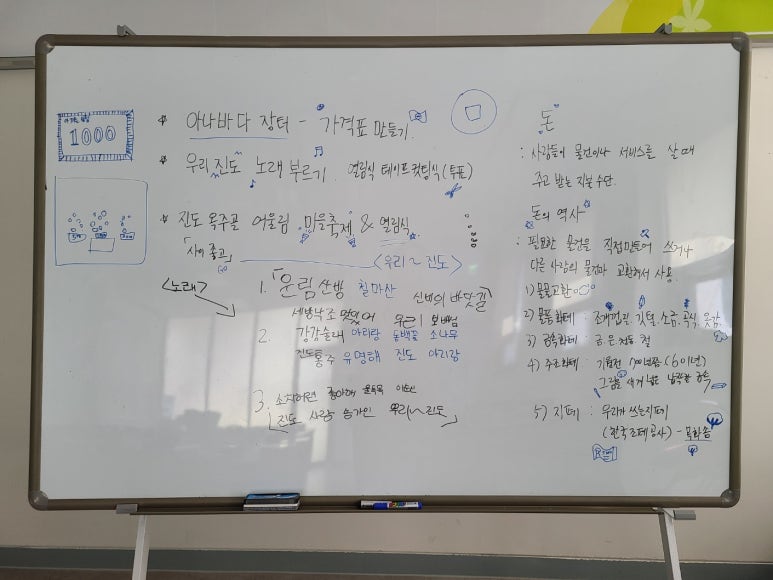 1000
아나바다 장터 - 가격표 만들기
우리 진도 노래 부르기 열림식 테이프컷팅식(투표)
진도 옥주골 어울림 마을축제 & 열림식
「사이 좋고」
<우리~진도>
<노래>
1. 「운림산방 칠마산 신비의 바닷길
세방낙조 멋있어 우리 보배섬
2. 강강술래 아리랑 동백꽃 소나무
진도 홍주 유명해 진도 아리랑
3. 소치허련
진도 사람 송가인 우리~진도」
돈
: 사람들이 물건이나 서비스를 살 때
주고 받는 지불수단.
돈의 역사
: 필요한 물건을 직접 만들어 쓰거나
다른 사람의 물건과 교환해서 사용.
1) 물물교환
2) 물품화폐 : 조개껍질, 깃털, 소금, 곡식, 옷감,
3) 금속화폐 : 금 은 청동 철
4) 주조화폐 : 기원전 (6이년)
그림을 새겨 넣은 납작한 금속
5) 지폐 : 우리가 쓰는 지폐
(한국조폐공사) - 목화솜